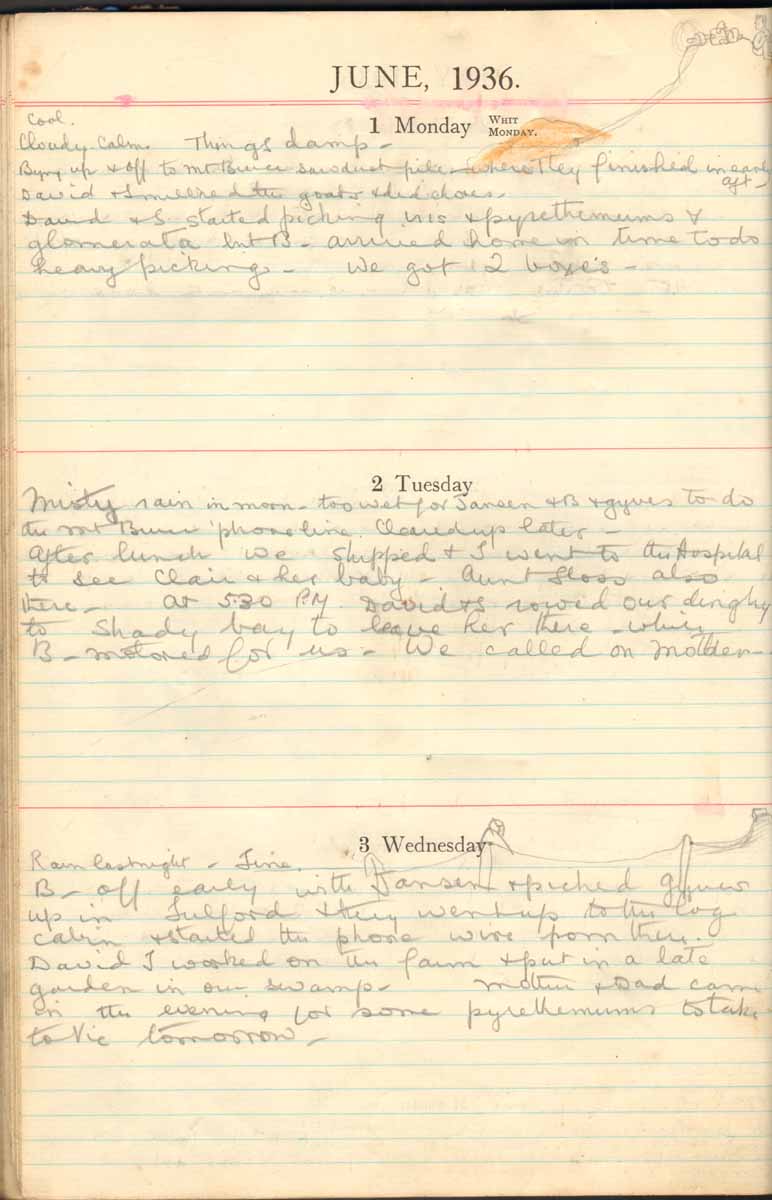 JUNE, 1936.
1 Monday WHIT MONDAY.
Cool.
Cloudy. Calm. Things damp -
up & off to Mt Bruce sawdust pile - where they finished in early
aft -
David & I milked the goats & did chores -
David & I started picking iris & pyrethemums &
glomerata but B - arrived home in time to do
heavy picking - We got 2 boxes -
2 Tuesday
Misty rain in morn - too wet for Jansen & B & gyves to do
the Mt Bruce 'phone line. Cleared up later -
After lunch we shipped & I went to the Hospital
to see Clair & her baby - Aunt also
there - At 5:30 P.M. David & I rowed our dinghy
to Shady bay to leave her there - while
B - motored for us - We called on Mother -
3 Wednesday
Rain last night - Fine.
B - off early with Jansen & picked gyves
up in Fulford & they went up to the log
cabin & started the phone wire from there.
David I worked on the farm & put in a late
garden in our swamp - Mother & Dad came
in the evening for some pyrethemums to take
to Vic tomorrow -